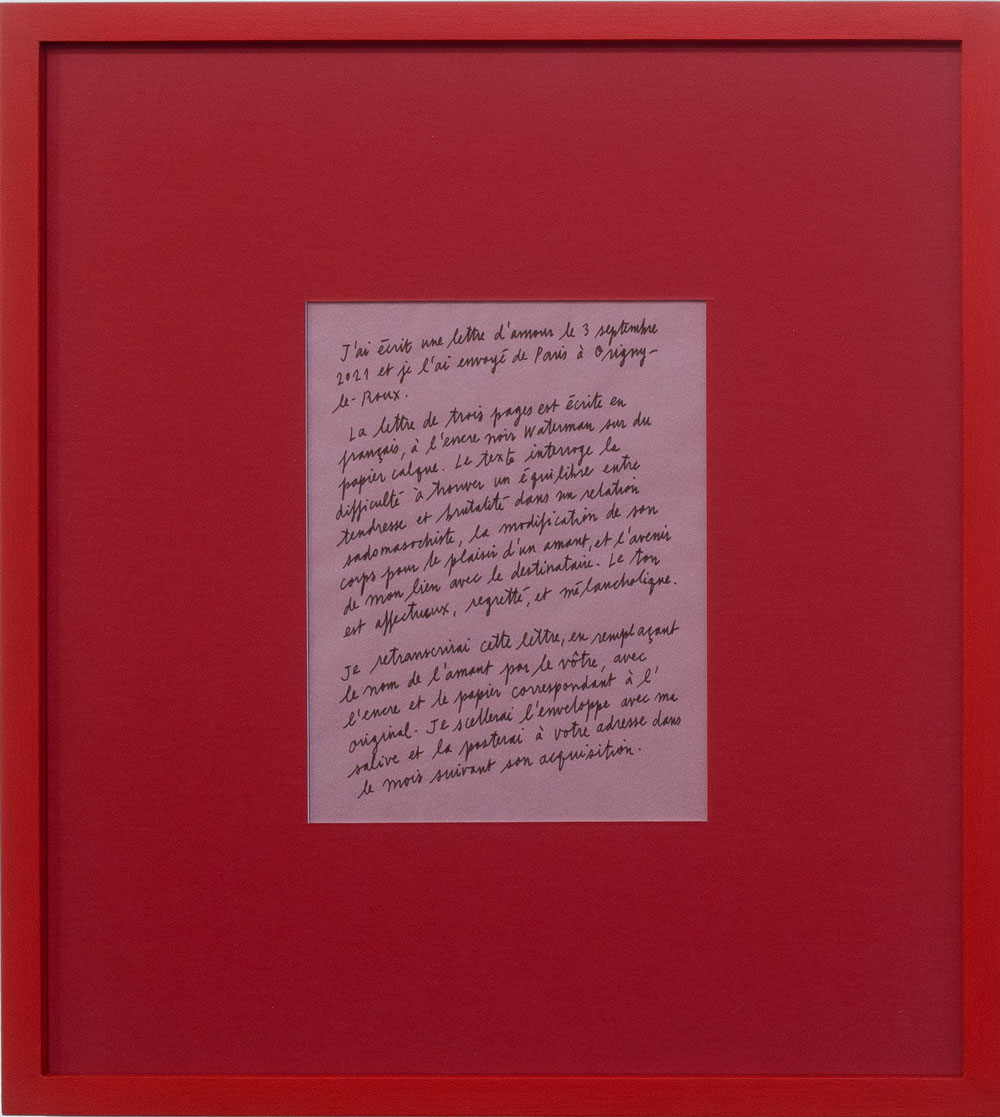 J'ai écrit une lettre d'amour le 3 septembre
2021 et je l'ai envoyé de Paris à Origny-
le-Roux.
La lettre de trois pages est écrite en
français, à l'encre noir Waterman sur du
papier calque. Le texte interroge la
difficulté à trouver un équilibre entre
tendresse et brutalité dans un relation
sadomasochiste, la modification de son
corps pour le plaisir d'un amant, et l'avenir
de mon lien avec le destinataire. Le ton
est affectueux, regretté, et mélancholique.
Je retranscrirai cette lettre, en remplaçant
le nom de l'amant par le vôtre, avec
l'encre et le papier correspondant à l'
original. Je scellerai l'enveloppe avec ma
salive et la posterai à votre adresse dans
le mois suivant son acquisition.